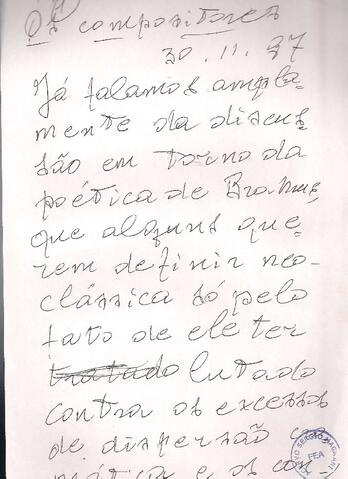 Os compositores
30.11.97
Já falamos ampla-
mente da discus-
são em torno da
poética de Brahms,
que alguns que-
rem definir neo-
clássica só pelo
fato de ele ter
tratado lutado
contra os excessos
de dispersão
e os con-
FEA